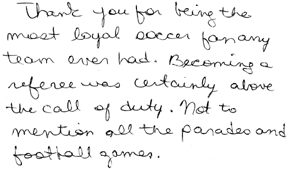 Thank you for being the
most loyal soccer fan any
team ever had. Becoming a
referee was certainly above
the call of duty. Not to
mention all the parades and
football games.